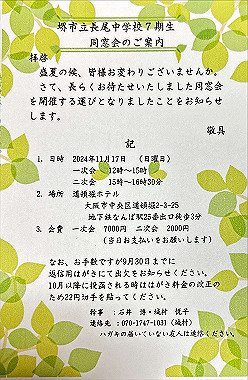 堺市立長尾中学校7期生
同窓会のご案内
拝啓
盛夏の候、皆様お変わりございませんか。
さて、長らくお待たせいたしました同窓会
を開催する運びとなりましたことをお知らせ
します。
敬具
記
1. 日時 2024年11月17日 (日曜日)
一次会 12時~15時
二次会 15時~16時30分
2. 場所 道頓堀ホテル
大阪市中央区道頓堀2-3-25
地下鉄なんば駅25番出口徒歩3分
3. 会費 一次会 7000円 二次会 2000円
(当日お支払いをお願いします)
なお、お手数ですが9月30日までに
返信用はがきにて出欠をお知らせください。
10月以降に投函される時ははがき料金の改正の
ため22円切手を貼ってください。
幹事：石井 博・城村 悦子
連絡先：070-1747-1031 (城村)
ハガキの届いていない友人は連絡ください。